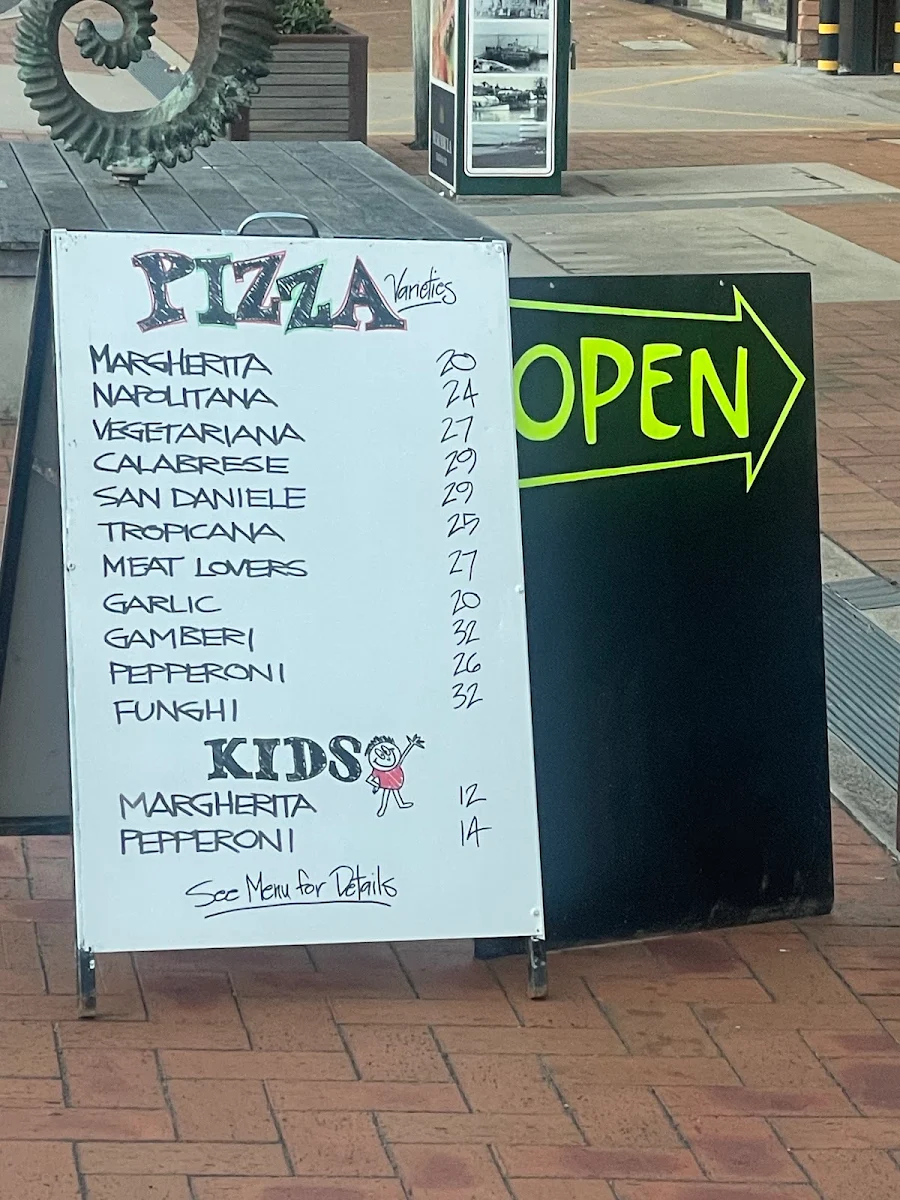 PIZZA Varieties
MARGHERITA 20
NAPOLITANA 24
VEGETARIANA 27
CALABRESE 29
SAN DANIELE 29
TROPICANA 25
MEAT LOVERS 27
GARLIC 20
GAMBERI 32
PEPPERONI 26
FUNGHI 32
KIDS
MARGHERITA 12
PEPPERONI 14
See Menu for Details
OPEN